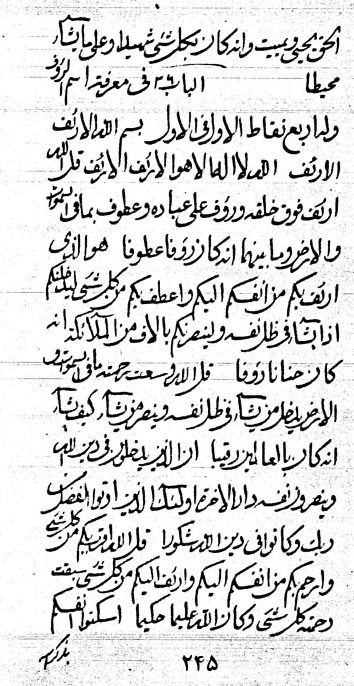 الحق يحيي ويميت وانه كان بكل شئ شهيدا وعلى ما يشآء
محيطا الباب ٢٦ فى معرفة اسم الرؤف
وله اربع نقاط الاول فى الاول بسم الله الارئف
الارئف الله لا اله الا هو الارئف الارئف قل الله
ارئف فوق خلقه ورؤف على عباده وعطوف بما فى السموات
والارض وما بينهما انه كان رؤفا عطوفا هو الذى
ارئف بكم من انفسكم اليكم واعطف بكم من كل شئ ليدخلنكم
اذا يشآء فى ظل نفسه وينصرنكم بالاف من الملآئكة انه
كان حنانا رؤفا قل الله وسعت رحمته ما فى السموات و
الارض يدخل من يشآء فى ظل نفسه وينصر من يشآء كيف يشآء
انه كان بالعالمين رقيبا ان الذين يدخلون فى دين الله
وينصرون نفسه دار الاخرة اولئك الذين اوتوا الفضل من
ربك وكانوا فى دين الله شكورا قل الله اقرب بكم من كل شئ
وارحم بكم من انفسكم اليكم وارئف اليكم من كل شئ سبقت
رحمته كل شئ وكان الله عليما حكيما اسكنوا انفسكم
بذكر
٢٤٥